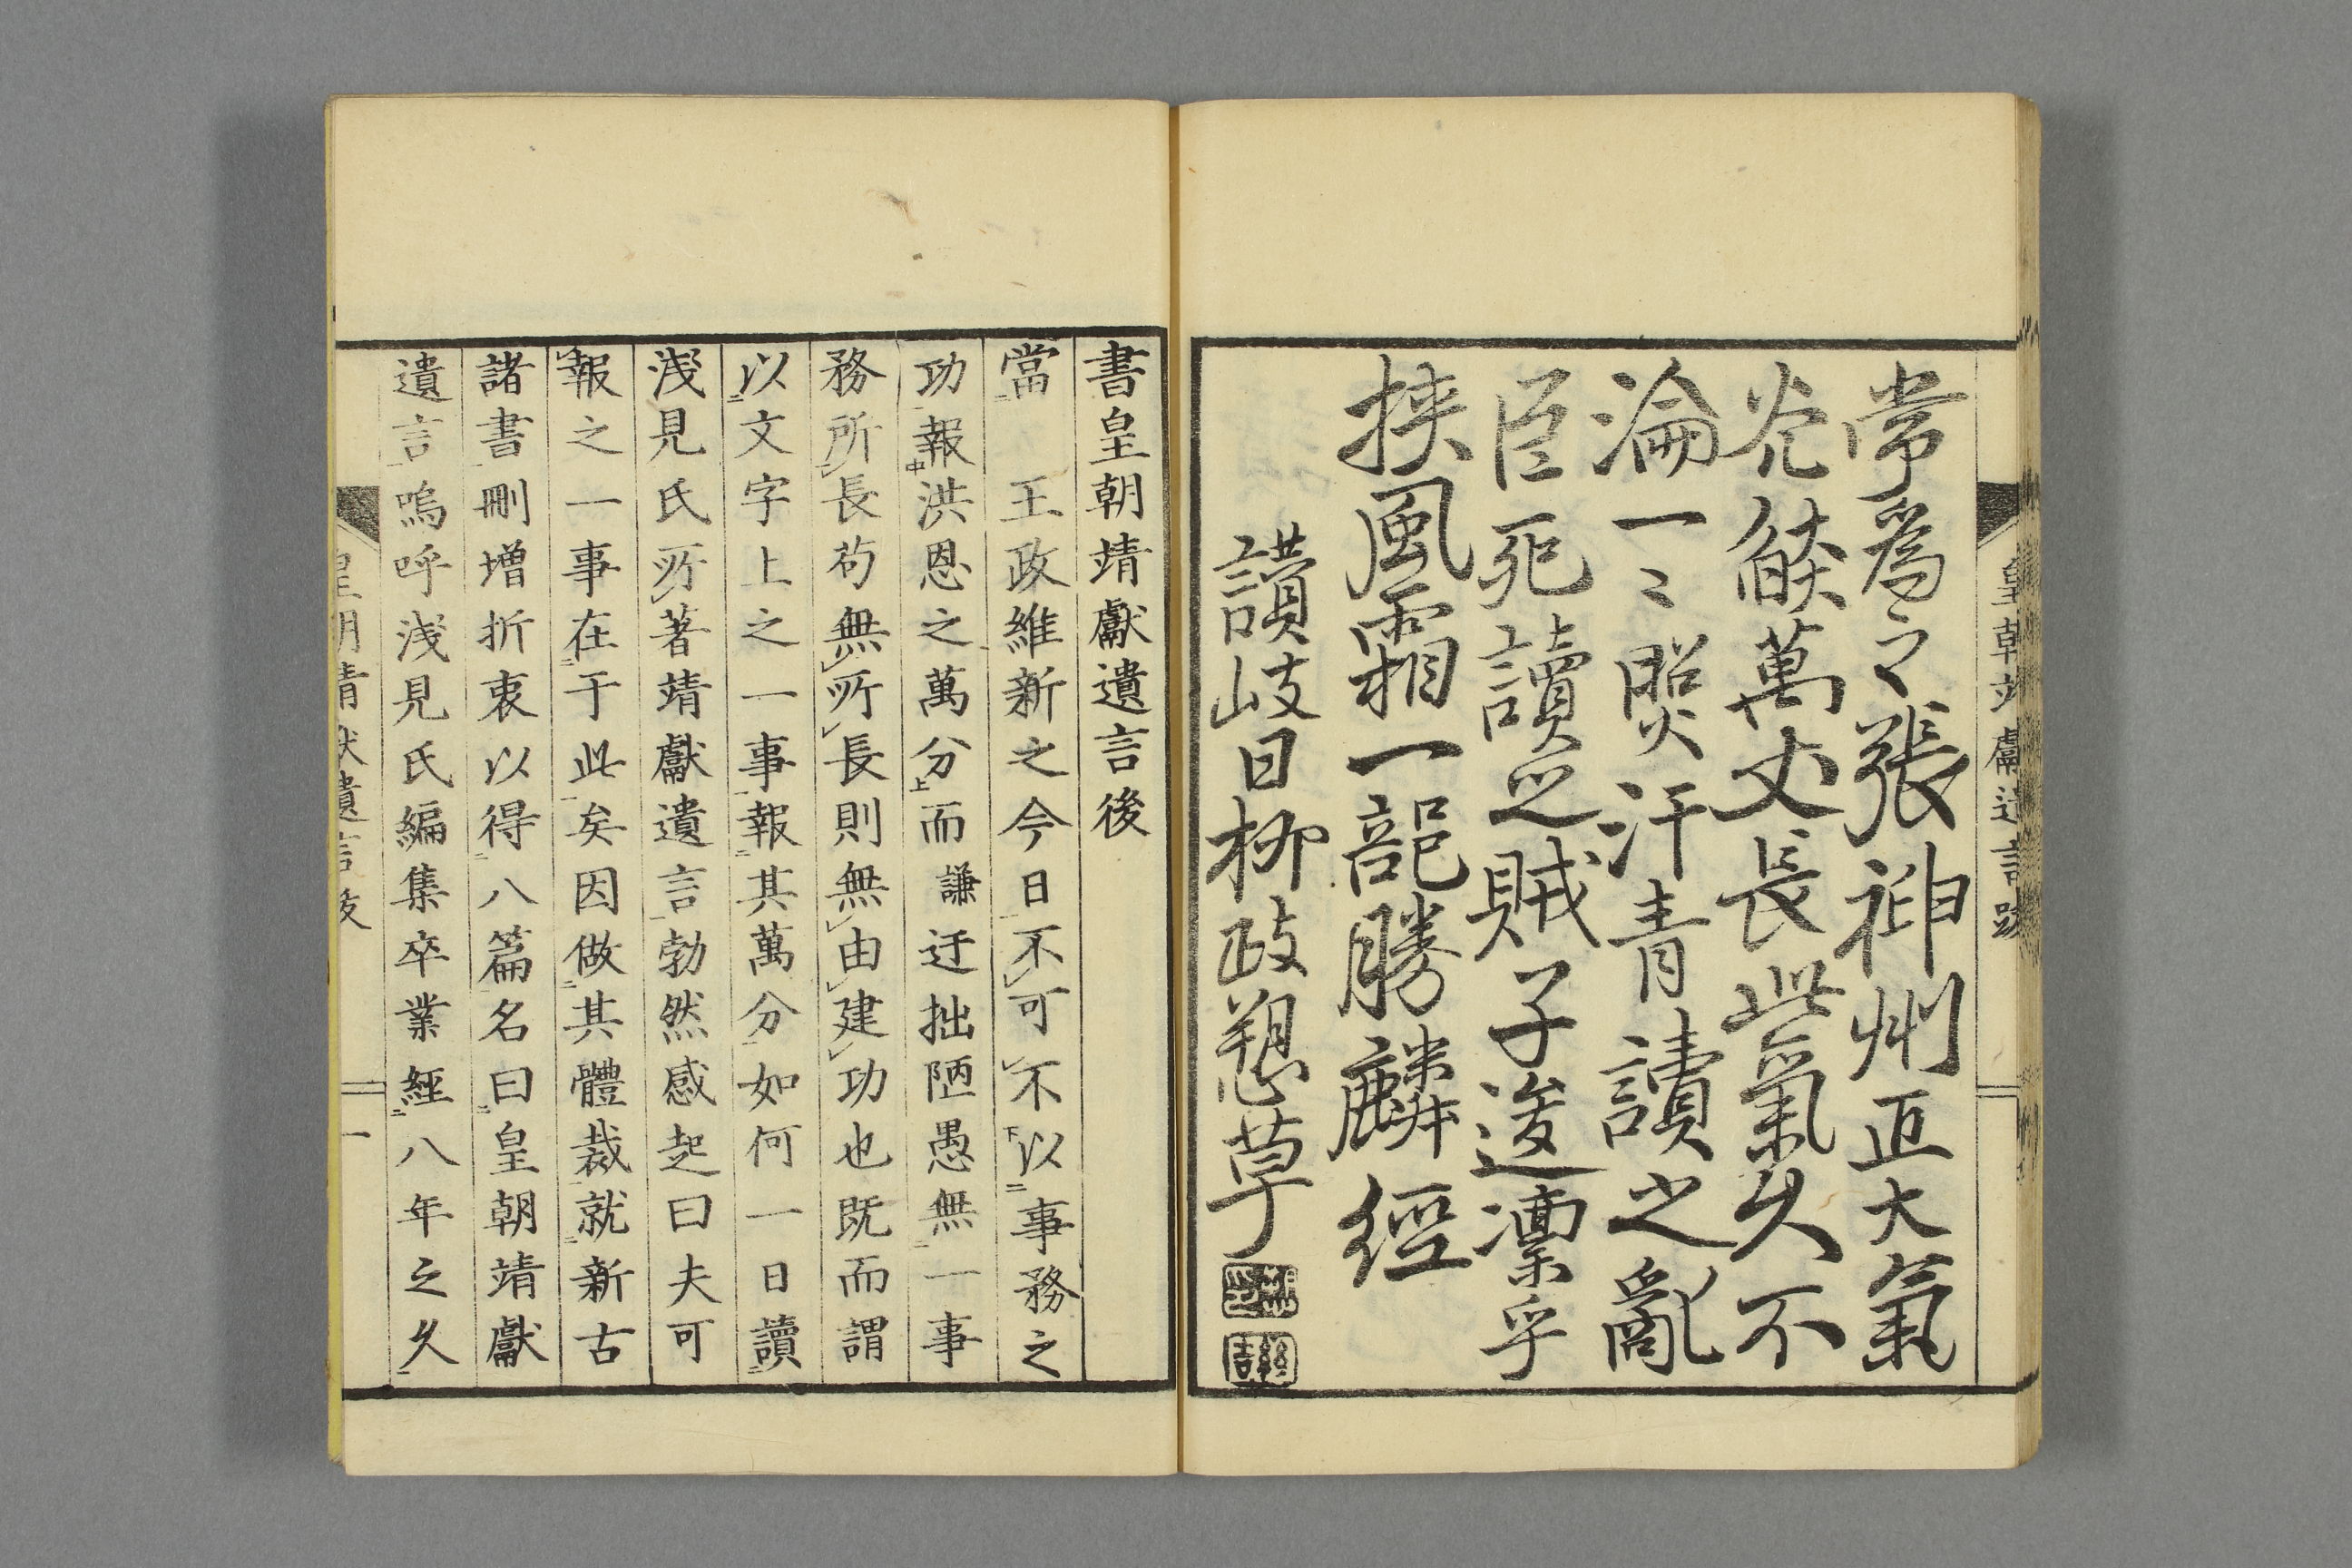 皇朝靖獻遺言跋
常爲之張神州正大氣
光燄萬丈長此氣久不
淪一〻照汗青讀之亂
臣死讀之賊子逡凛乎
挾風霜一部勝麟經
讃岐日柳政愬草
書皇朝靖獻遺言後
當　王政維新之今日不可不以事務之
功報洪恩之萬分而謙迂拙陋愚無一事
務所長苟無所長則無由建功也既而謂
以文字上之一事報其萬分如何一日讀
淺見氏所著靖獻遺言勃然感起曰夫可
報之一事在于此矣因倣其體裁就新古
諸書刪增折衷以得八篇名曰皇朝靖獻
遺言嗚呼淺見氏編集卒業經八年之久
皇朝靖獻遺言後
一